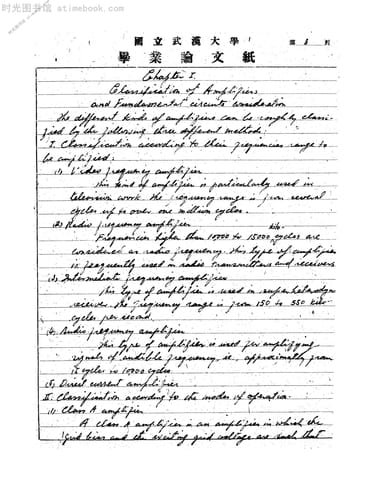 时光图书馆 atimebook.com
國立武漢大學
第 頁
畢業論文紙
Chapter I.
Classification of Amplifiers
and Fundamental circuits consideration
The different kinds of amplifiers can be roughly classi-
fied by the following three different methods:
I. Classification according to their frequencies range to
be amplified:
(1) Video frequency amplifier
This kind of amplifier is particularly used in
television work. The frequency range is from several
cycles up to over one million cycles.
(2) Radio frequency amplifier
Frequencies higher than 10000 to 15000 cycles are
considered as radio frequency. This type of amplifier
is frequently used in radio transmitters and receivers
(3) Intermediate frequency amplifier
This type of amplifier is used in superheterodyne
receiver. The frequency range is from 150 to 550 kilo-
cycles per second.
(4) Audio frequency amplifier
This type of amplifier is used for amplifying
signals of audible frequency, ie. approximately from
15 cycles to 10000 cycles
(5) Direct current amplifier
II. Classification according to the modes of operation.
(1) Class A amplifier
A class A amplifier is an amplifier in which the
grid bias and the exciting grid voltage are such that